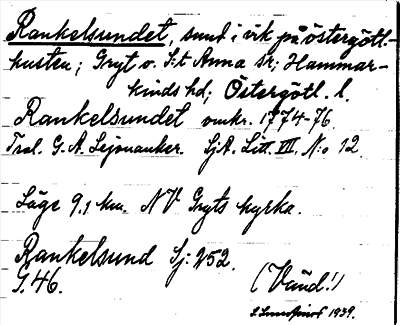 Rankelsundet, sund i vik på östergötl.-
kusten; Gryt o. S:t Anna sr; Hammar-
kinds hd; Östergötl. l.
Rankelsundet omkr. 1774-76.
Trol. G. A. Lejonanker. SjA. Litt. VII, N:o 12.
Läge 9.1 km. NV Gryts kyrka.
Rankelsund Sj: 252.
G. 46.
(Vänd!)
1939.